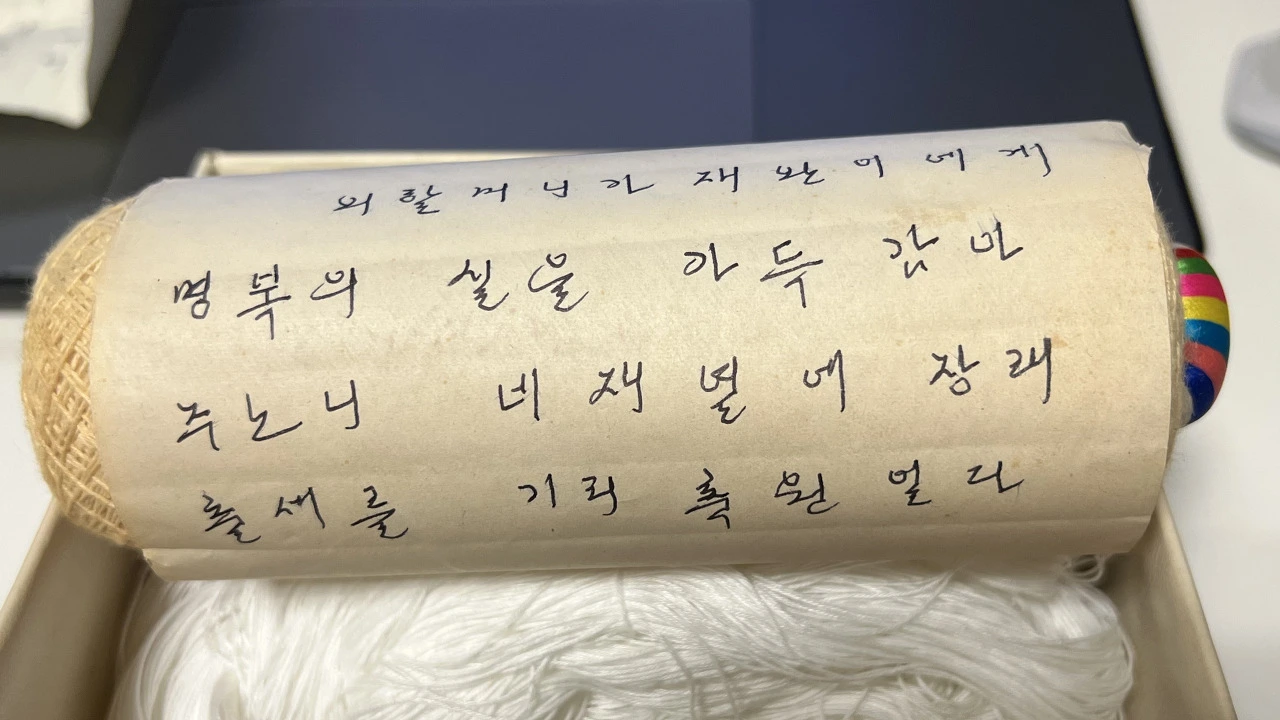 외할머니가 재완이에게
명복의 실을 아두 감마
주노니 네 재별에 장래
출세를 기리 축원 얼다